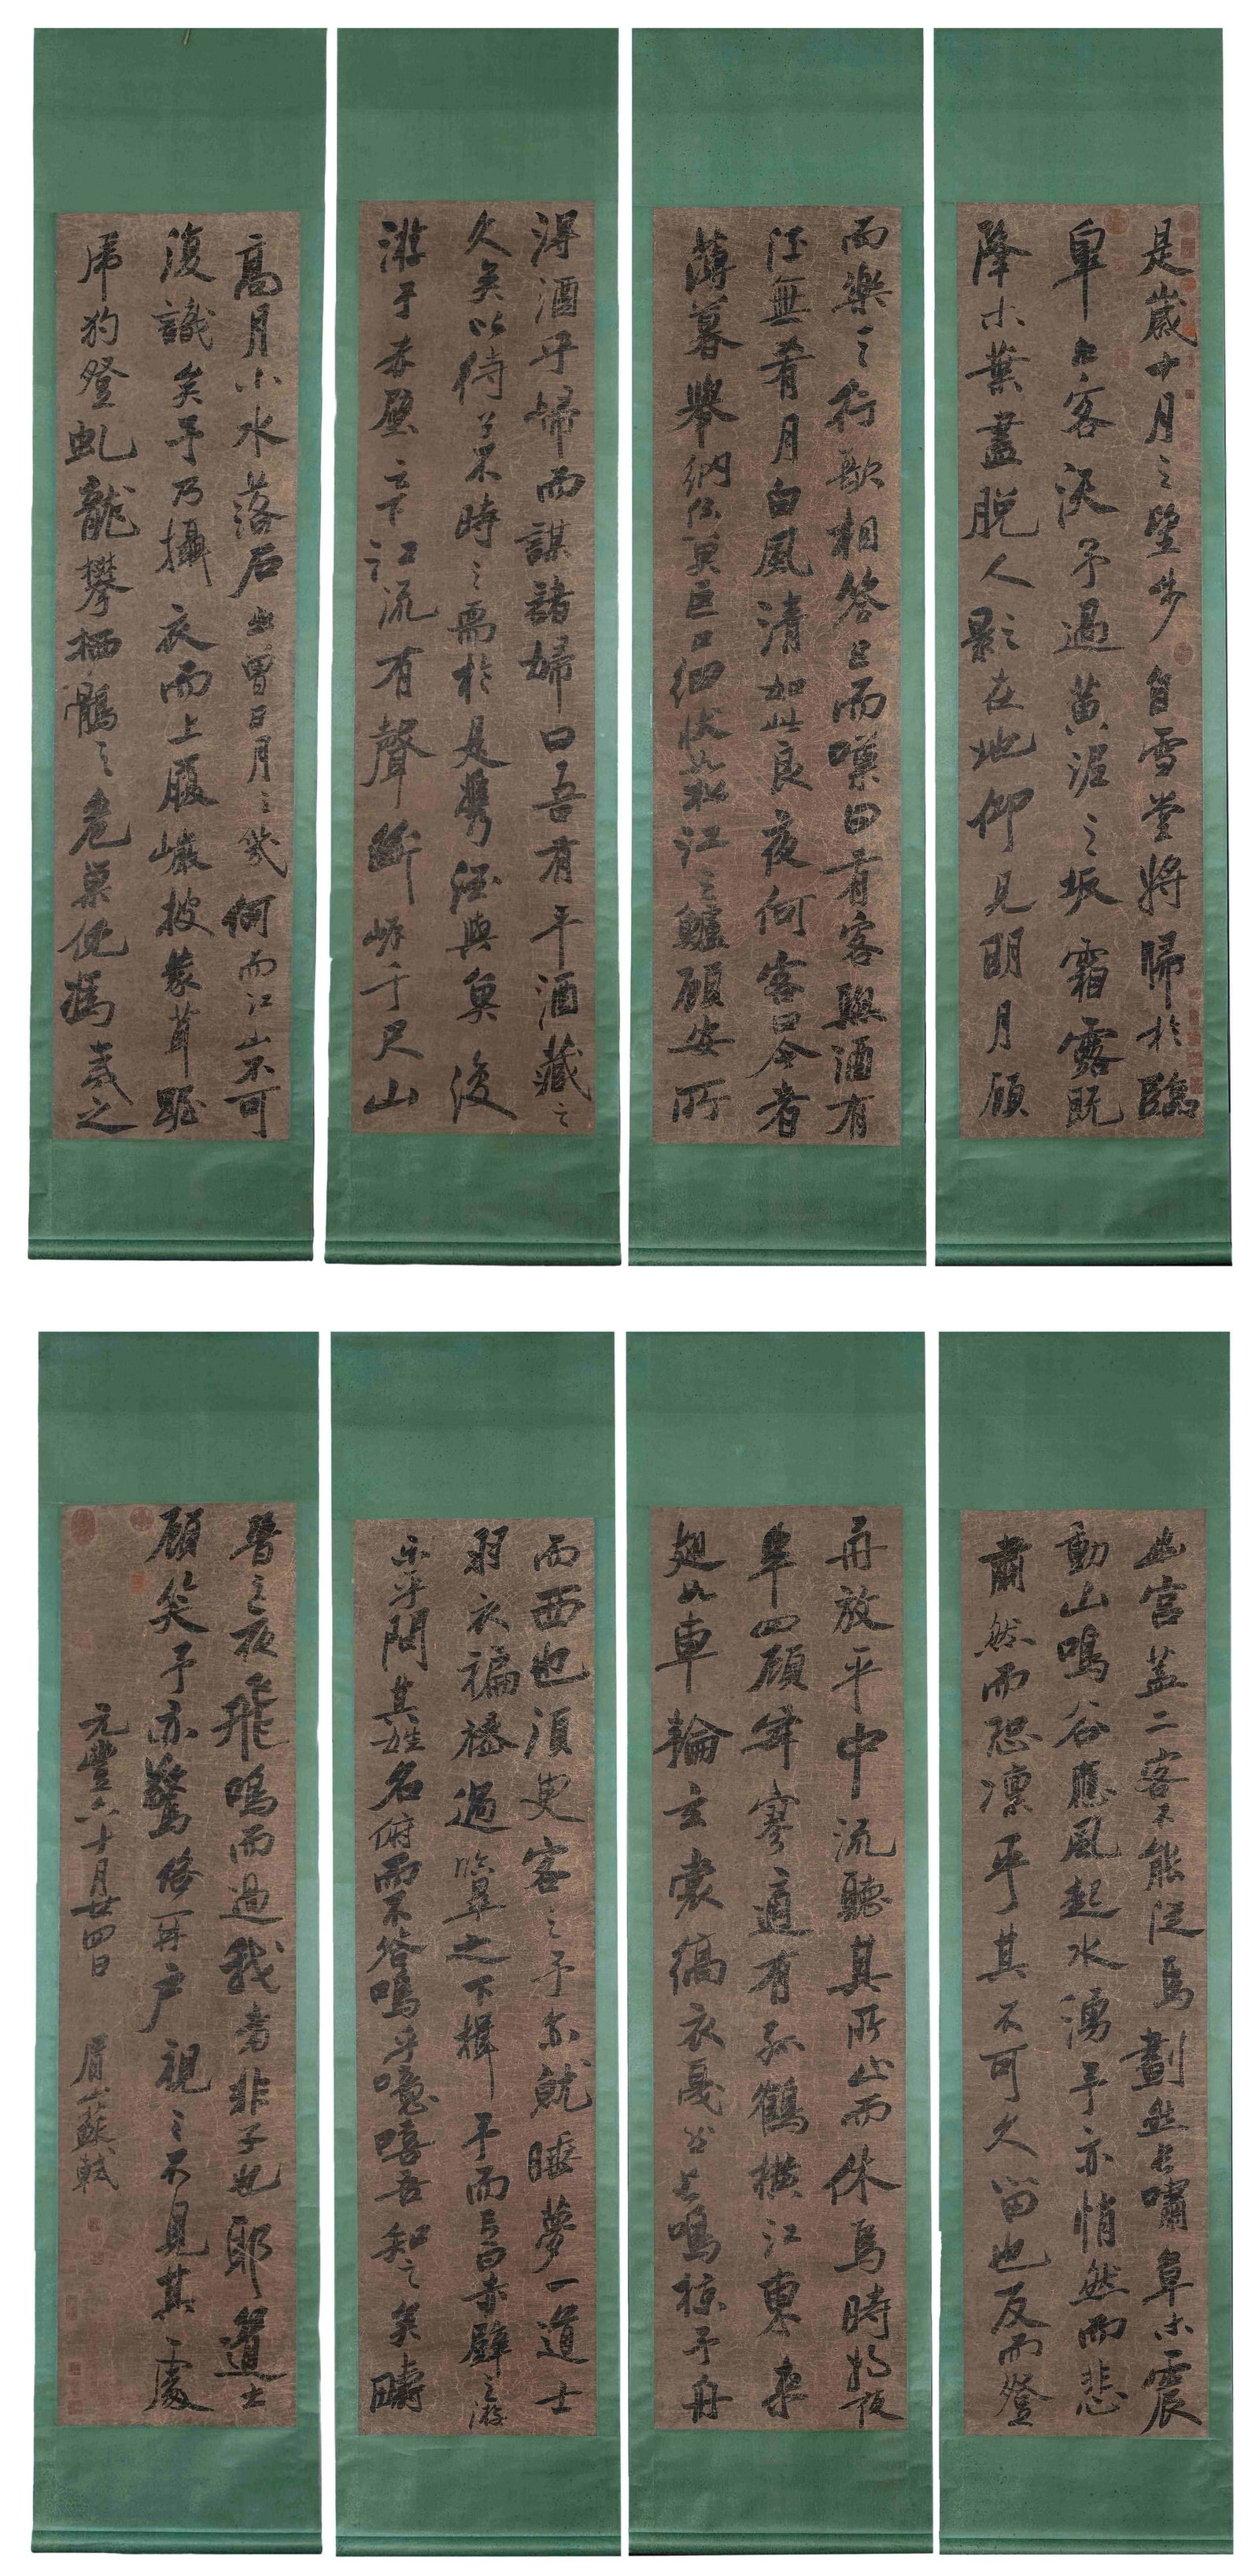 是歲十月之望步自雪堂將歸於臨
皋二客從予過黃泥之坂霜露既
降木葉盡脫人影在地仰見明月顧
而樂之行歌相答已而嘆曰有客無酒有
酒無肴月白風清如此良夜何客曰今者
薄暮舉網得魚巨口細狀如松江之鱸顧安所
得酒乎歸而謀諸婦曰吾有斗酒藏之
久矣以待子不時之需於是攜酒與魚復
游于赤壁之下江流有聲斷岸千尺山
高月小水落石出曾日月之幾何而江山不可
復識矣予乃攝衣而上履巖披蒙茸踞
虎豹登虬龍攀栖鶻之危巢俯馮夷之
幽宮蓋二客不能從焉劃然長嘯草木震
動山鳴谷應風起水湧予亦悄然而悲
肅然而恐凜乎其不可久留也反而登
舟放乎中流聽其所止而休焉時將夜
半四顧寂寥適有孤鶴橫江東來
翅如車輪玄裳縞衣戛然長鳴掠予舟
而西也須臾客去予亦就睡夢一道士
羽衣蹁躚過臨皋之下揖予而言曰赤壁之游
樂乎問其姓名俯而不答嗚乎噫嘻吾知之矣疇
昔之夜飛鳴而過我者非子也耶道士
顧笑予亦驚悟開戶視之不見其處
元豐六十月廿四日 眉山蘇軾